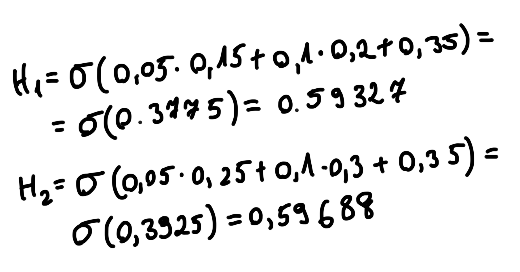 H₁= σ(0,05·0,15+0,1·0,2+0,35)=
= σ(0.3775)= 0.59327
H₂= σ(0,05·0,25+0,1·0,3+0,35)=
σ(0,3925)=0,59688